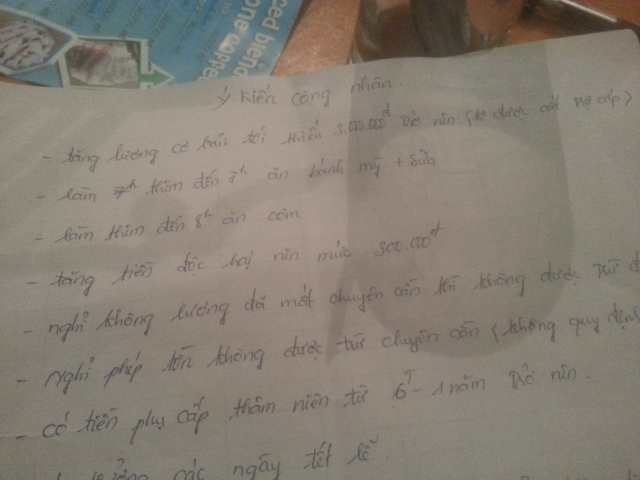 ced biên
one coppe
Ý kiến công nhân.
- tăng lương cơ bản tối thiểu 3.000.000đ trở nên (ko được cắt trợ cấp)
- làm thêm đến 7h ăn bánh mỳ + sữa
- làm thêm đến 8h ăn cơm
- tăng tiền độc hại nên mức 300.000đ
- nghỉ không lương đã mất chuyên cần thì không được trừ
- Nghỉ phép tồn không được trừ chuyên cần (không quy định
- có tiền phụ cấp thâm niên từ 6T - 1 năm trở nên.
các ngày tết lễ.